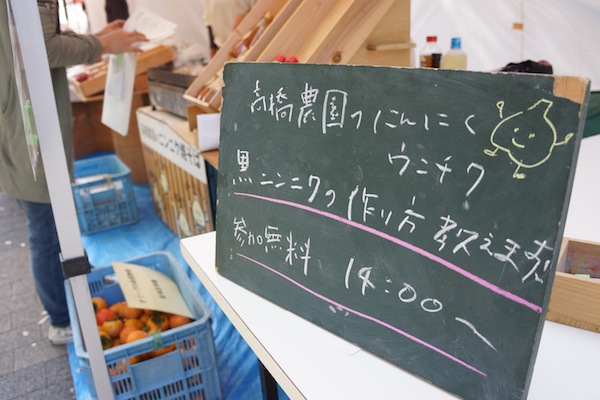 高橋農園のにんにく
ウンチク
黒ニンニクの作り方教えます
参加無料 14:00〜